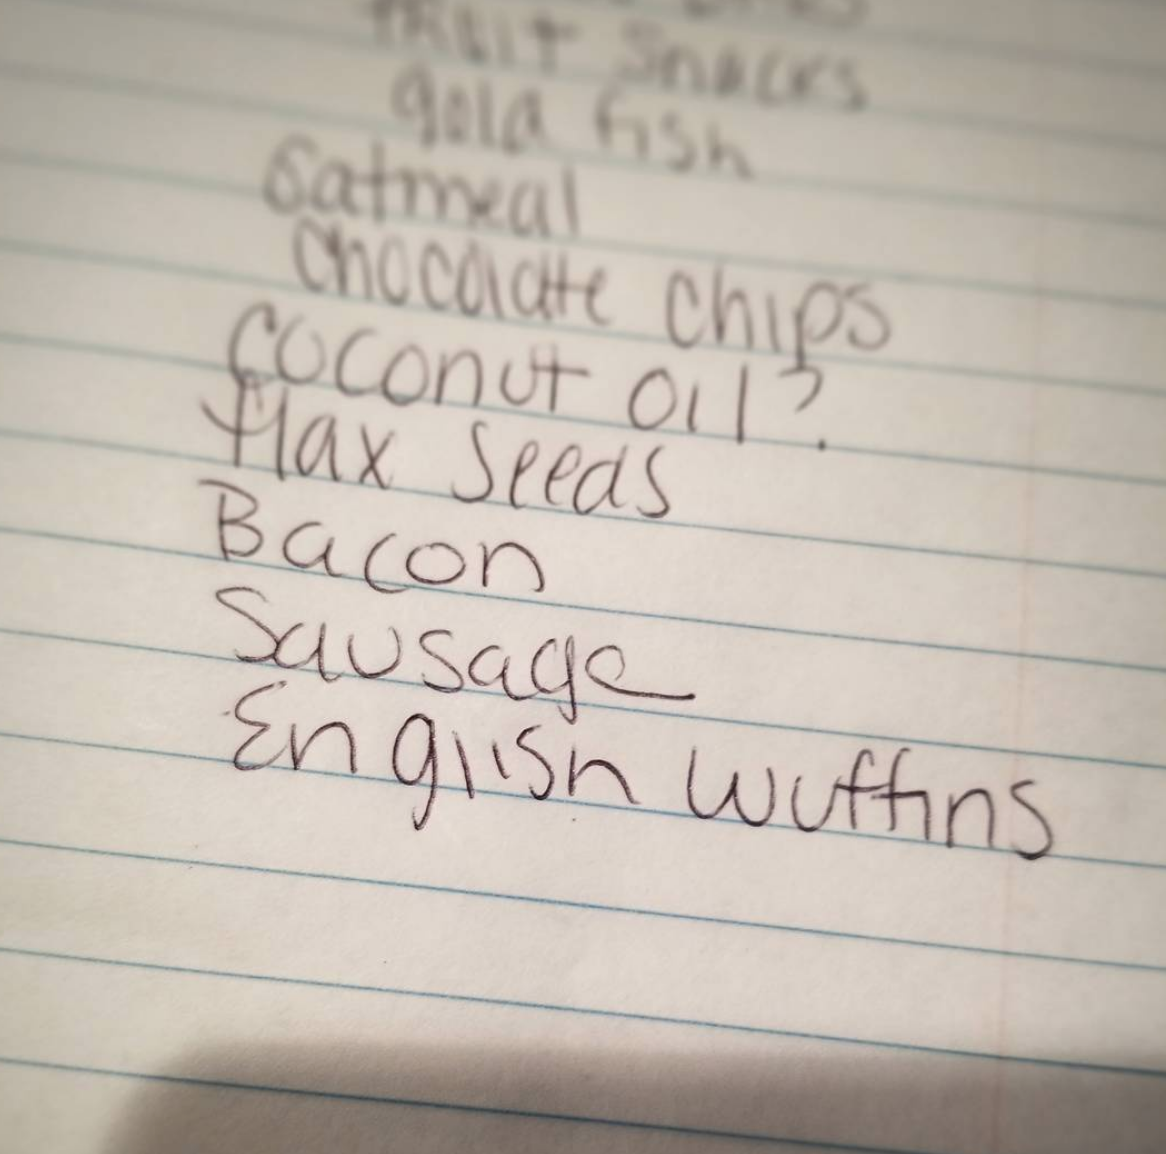 Fruit Snacks
gold fish
Oatmeal
Chocolate Chips
Coconut oil?
flax Seeds
Bacon
Sausage
English wuffins